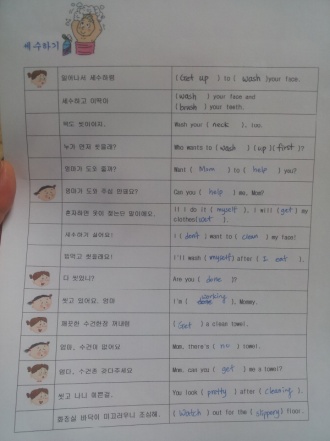 세수하기
일어나서 세수하렴
(Get up) to (wash) your face.
세수하고 이 닦아
(wash) your face and
(brush) your teeth.
목도 씻어야지.
Wash your (neck), too.
누가 먼저 씻을래?
Who wants to (wash) (up) (first)?
엄마가 도와 줄까?
Want (Mom) to (help) you?
엄마가 도와 주실 껀데요?
Can you (help) me, Mom?
혼자하면 옷이 젖는단 말이에요.
If I do it (myself), I will (get) my
clothes (soot).
세수하기 싫어요!
I (don't) want to (clean) my face!
밥먹고 씻을래요!
I'll wash (myself) after (I eat).
다 씻었니?
Are you (done)?
씻고 있어요, 엄마
working
I'm (done), Mommy.
깨끗한 수건한장 꺼내렴
(Soot) a clean towel.
엄마, 수건이 없어요
Mom, there's (no) towel.
엄마, 수건좀 갖다주세요
Mom, can you (get) me a towel?
씻고 나니 이쁜걸.
You look (pretty) after (cleaning).
화장실 바닥이 미끄러우니 조심해.
(Watch) out for the (slippery) floor.